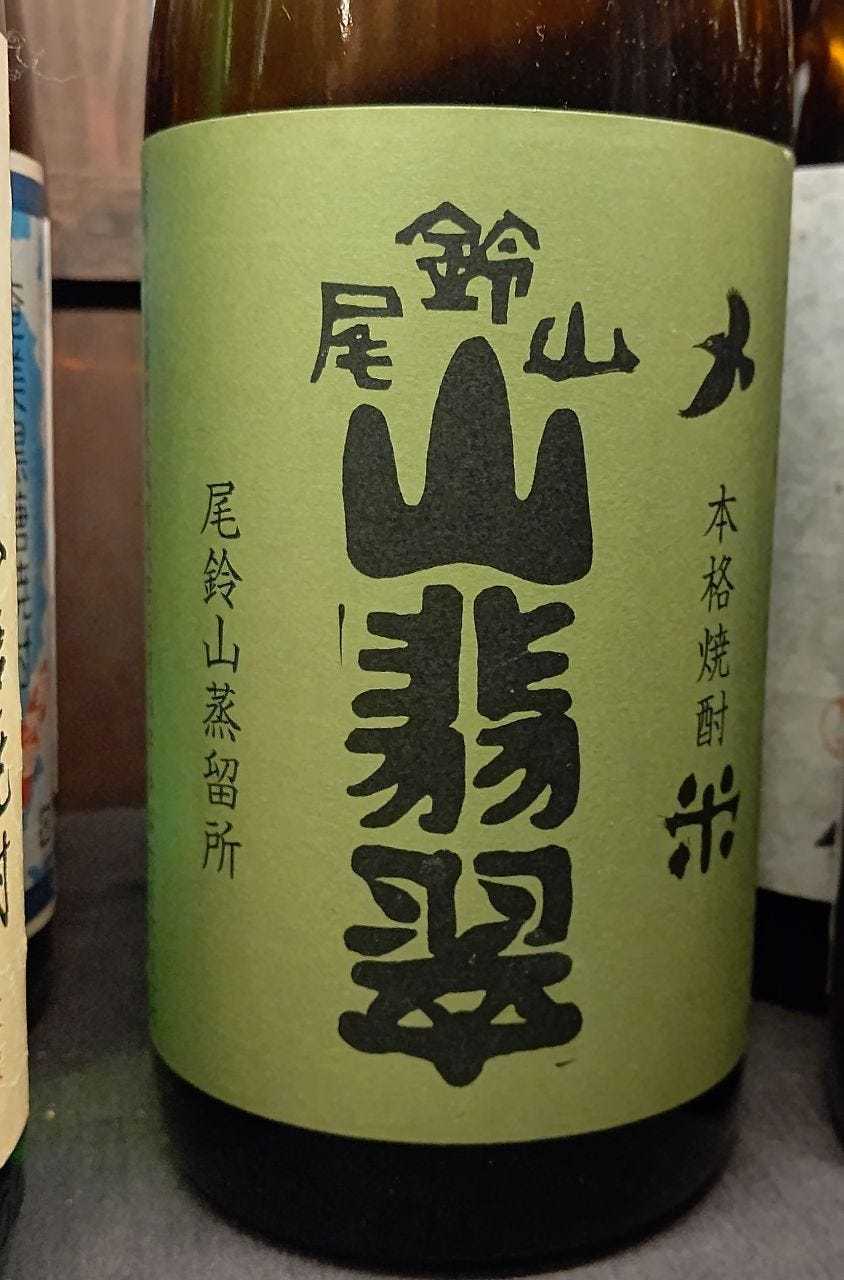 尾鈴山
山翡翠
本格焼酎
米
尾鈴山蒸留所